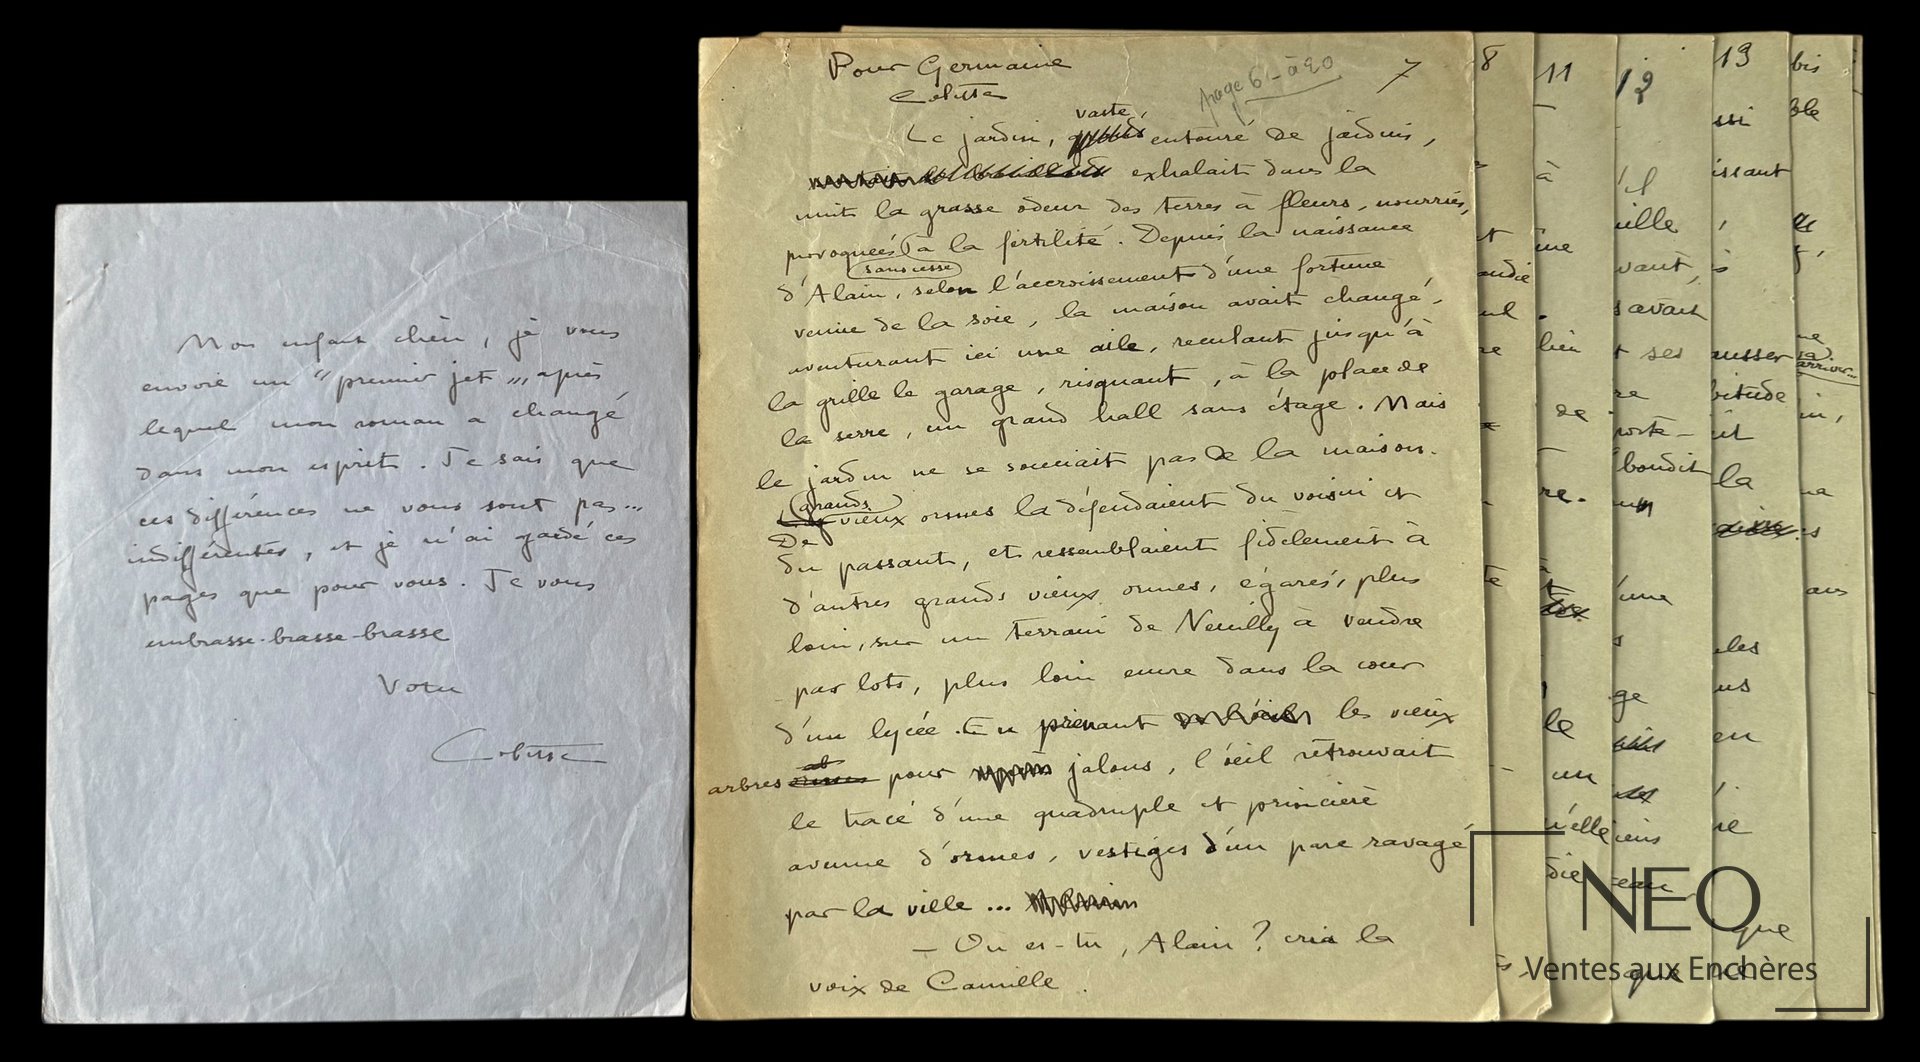 Mon enfant chéri, je vous
envoie un "premier jet", après
lequel mon roman a changé
dans mon esprit. Je sais que
ces différences ne vous sont pas...
indifférentes, et je n'ai gardé ces
pages que pour vous. Je vous
embrasse-brasse-brasse
Votre
Colette
Pour Germaine
Colette
page 6 - à 20
7
vaste,
Le jardin, entouré de jardins,
exhalait dans la
nuit la grasse odeur des terres à fleurs, nourries,
provoquées à la fertilité. Depuis la naissance
sans cesse
d'Alain, selon l'accroissement d'une fortune
venue de la soie, la maison avait changé,
aventurant ici une aile, reculant jusqu'à
la grille le garage, risquant, à la place de
la serre, un grand hall sans étage. Mais
le jardin ne se souciait pas de la maison.
grands
vieux ormes la défendaient du voisin et
De
du passant, et ressemblaient fidèlement à
d'autres grands vieux ormes, égarés, plus
loin, sur un terrain de Neuilly à vendre
par lots, plus loin encore dans la cour
d'un lycée. En prenant les vieux
arbres pour jalons, l'œil retrouvait
le tracé d'une quadruple et princière
avenue d'ormes, vestiges d'un parc ravagé
par la ville...
— Où es-tu, Alain ? cria la
voix de Camille.
8
11
à
une
lieu
de
re.
le
un
12
vant,
savait
t ses
bondit
13
issant
ausser
bitude
la
les
en
que
que
bis
NEO
Ventes aux Enchères